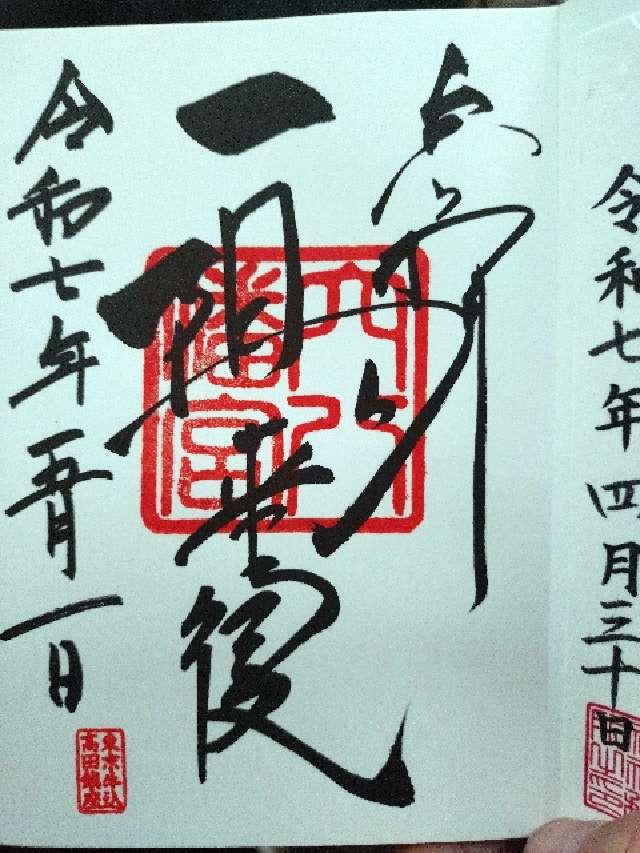 令和七年四月三十日
一陽来復
穴八
幡宮
令和七年五月一日
東京牛込
高田鎮座